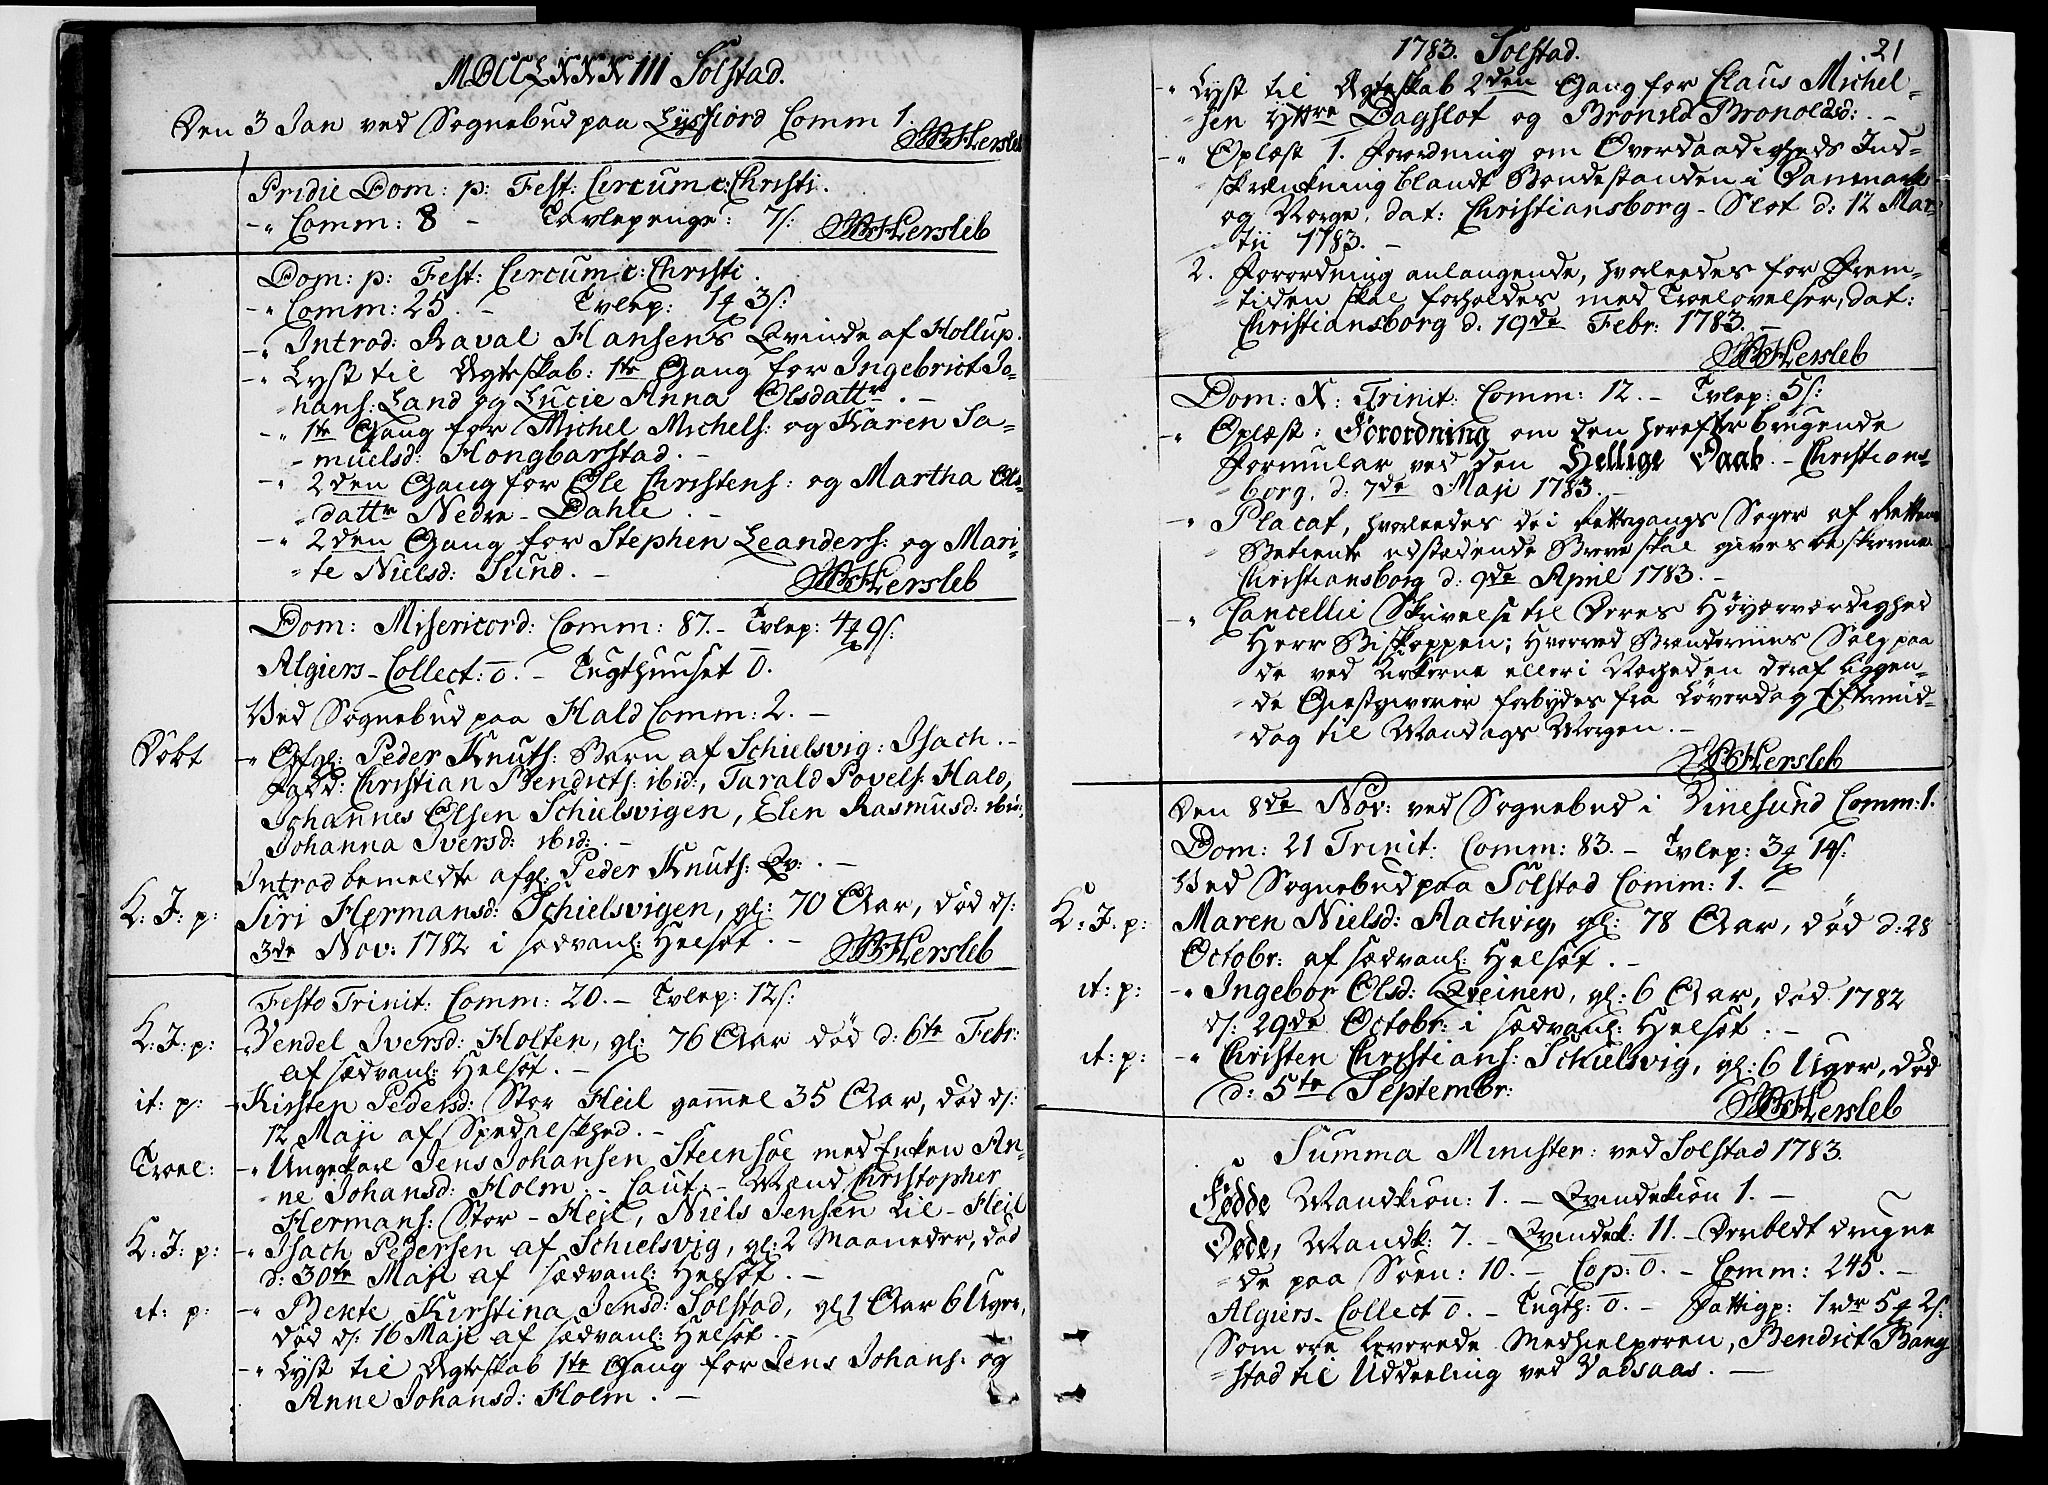 MDCCLXXXIII Solstad.
Den 3 Jan ved Sognebud paa Lysfiord Comm 1.
Hersleb
Pridie Dom: p: Fest: Circumc: Christi.
Comm: 8 - Tavlepenge: 7 s:
Hersleb
Dom: p: Fest: Circumc: Christi.
Comm: 25. - Tvlep: 3 s:
Introd: Raval Hansens Qvinde af Hollup.
Lyst til Ægteskab: 1te Gang for Ingebrict Jo-
hans: Land og Lucie Anna Olsdattr. -
1te Gang for Michel Michels: og Karen Sa-
muelsd: Hongbarstad. -
2den Gang for Ole Christens: og Martha Ols-
dattr Nedre-Dahle. -
2den Gang for Stephen Leanders: og Mari-
te Nielsd: Sund. -
Hersleb
Dom: Misericord: Comm: 87. - Tvlep: 4 9 s:
Algiers-Collect: 0. - Tugthuuset 0.
Ved Sognebud paa Hald Comm: 2. -
Døbt
Afgl: Peder Knuts: Barn af Schielsvig: Isach. -
Fadd: Christian Bendicts: ibid:, Tarald Povels: Hald,
Johannes Olsen Schielsvigen, Elen Rasmusd: ibid:,
Johanna Iversd: ibid: -
Introd bemeldte afgl: Peder Knuts: Qv: . -
K: J: p:
Siri Hermansd: Schielsvigen, gl: 70 Aar, død d:
3de Nov: 1782 i sædvanl: Helsot. -
Hersleb
Festo Trinit: Comm: 20. - Tvlep: 12 s:
K: J: p:
Vendel Iversd: Holten, gl: 76 Aar død d: 6te Febr:
af sædvanl: Helsot. -
it: p:
Kirsten Pedersd: Stor Heil gammel 35 Aar, død d:
12 Maji af Spedalskhed. -
Troel:
Ungekarl Jens Johansen Steensøe med Enken An-
ne Johansd: Holm. - Caut: - Mænd Christopher
Hermans: Stor-Heil, Niels Jensen Lil-Heil
K: J: p:
Isach Pedersen af Schielsvig, gl: 2 Maaneder, død
d: 30te Maji af sædvanl: Helsot. -
it: p:
Berete Kirstina Jensd: Solstad, gl 1 Aar 6 Uger,
død d: 16 Maji af sædvanl: Helsot. -
Lyst til Ægteskab 1te Gang for Jens Johans: og
Anne Johansd: Holm. -
1783. Solstad. 21
Lyst til Ægteskab 2den Gang for Claus Michel-
sen Yttre Dagslot og Bronild Bronoldsd: . -
Oplæst 1. Forordning om Overdaadigheds Ind-
skrænkning blandt Bondestanden i Danmark
og Norge, dat: Christiansborg-Slot d: 12 Mar-
tii 1783. -
2. Forordning anlangende, hvorleedes for Frem-
tiden skal forholdes med Troelovelser, dat:
Christiansborg d. 19de Febr: 1783. -
Hersleb
Dom: X: Trinit: Comm: 12. - Tvlep: 5 s:
Oplæst: Forordning om den herefter brugende
Formular ved den Hellige Daab. - Christians-
borg, d: 7de Maji 1783. -
Placat, hvorleedes de i Rettergangs Sager af Rettens
Betiente udstædende Breve skal gives beskrevne
Christiansborg d: 9de April 1783. -
Cancellie Skrivelse til Deres Høyærværdighed
Herr Biskoppen; hvorved Brændeviins Salg paa
de ved Kirkerne eller i Nærheden deraf liggen-
de Giestgiverier forbydes fra Løverdag Eftermid-
dag til Mandags Morgen. -
Hersleb
Den 8de Nov: ved Sognebud i Vinesund Comm: 1.
Dom: 21 Trinit: Comm: 83. - Tvlep: 3 14 s:
Ved Sognebud paa Solstad Comm: 1. -
K: J: p:
Maren Nielsd: Aachvig, gl: 78 Aar, død d: 28
Octobr: af sædvanl: Helsot. -
it: p:
Ingebor Olsd: Qveinen, gl: 6 Aar, død 1782
d: 29de Octobr: i sædvanl: Helsot. -
it: p:
Christen Christians: Schielsvig, gl: 6 Uger, død
d: 5te Septembr:
Hersleb
Summa Minister: ved Solstad 1783.
Fødde Mandkiøn: 1. - Qvindekiøn 1. -
Døde, Mandk: 7. - Qvindek: 11. - Deribldt drugne
de paa Søen: 10. - Cop: 0. - Comm: 245. -
Algiers-Collect 0. - Tugth: 0. - Fattigp: 1 rdr 5 2 s:
Som ere leverede Medhielperen, Bendict Bang
stad til Uddeeling ved Vadsaas. -